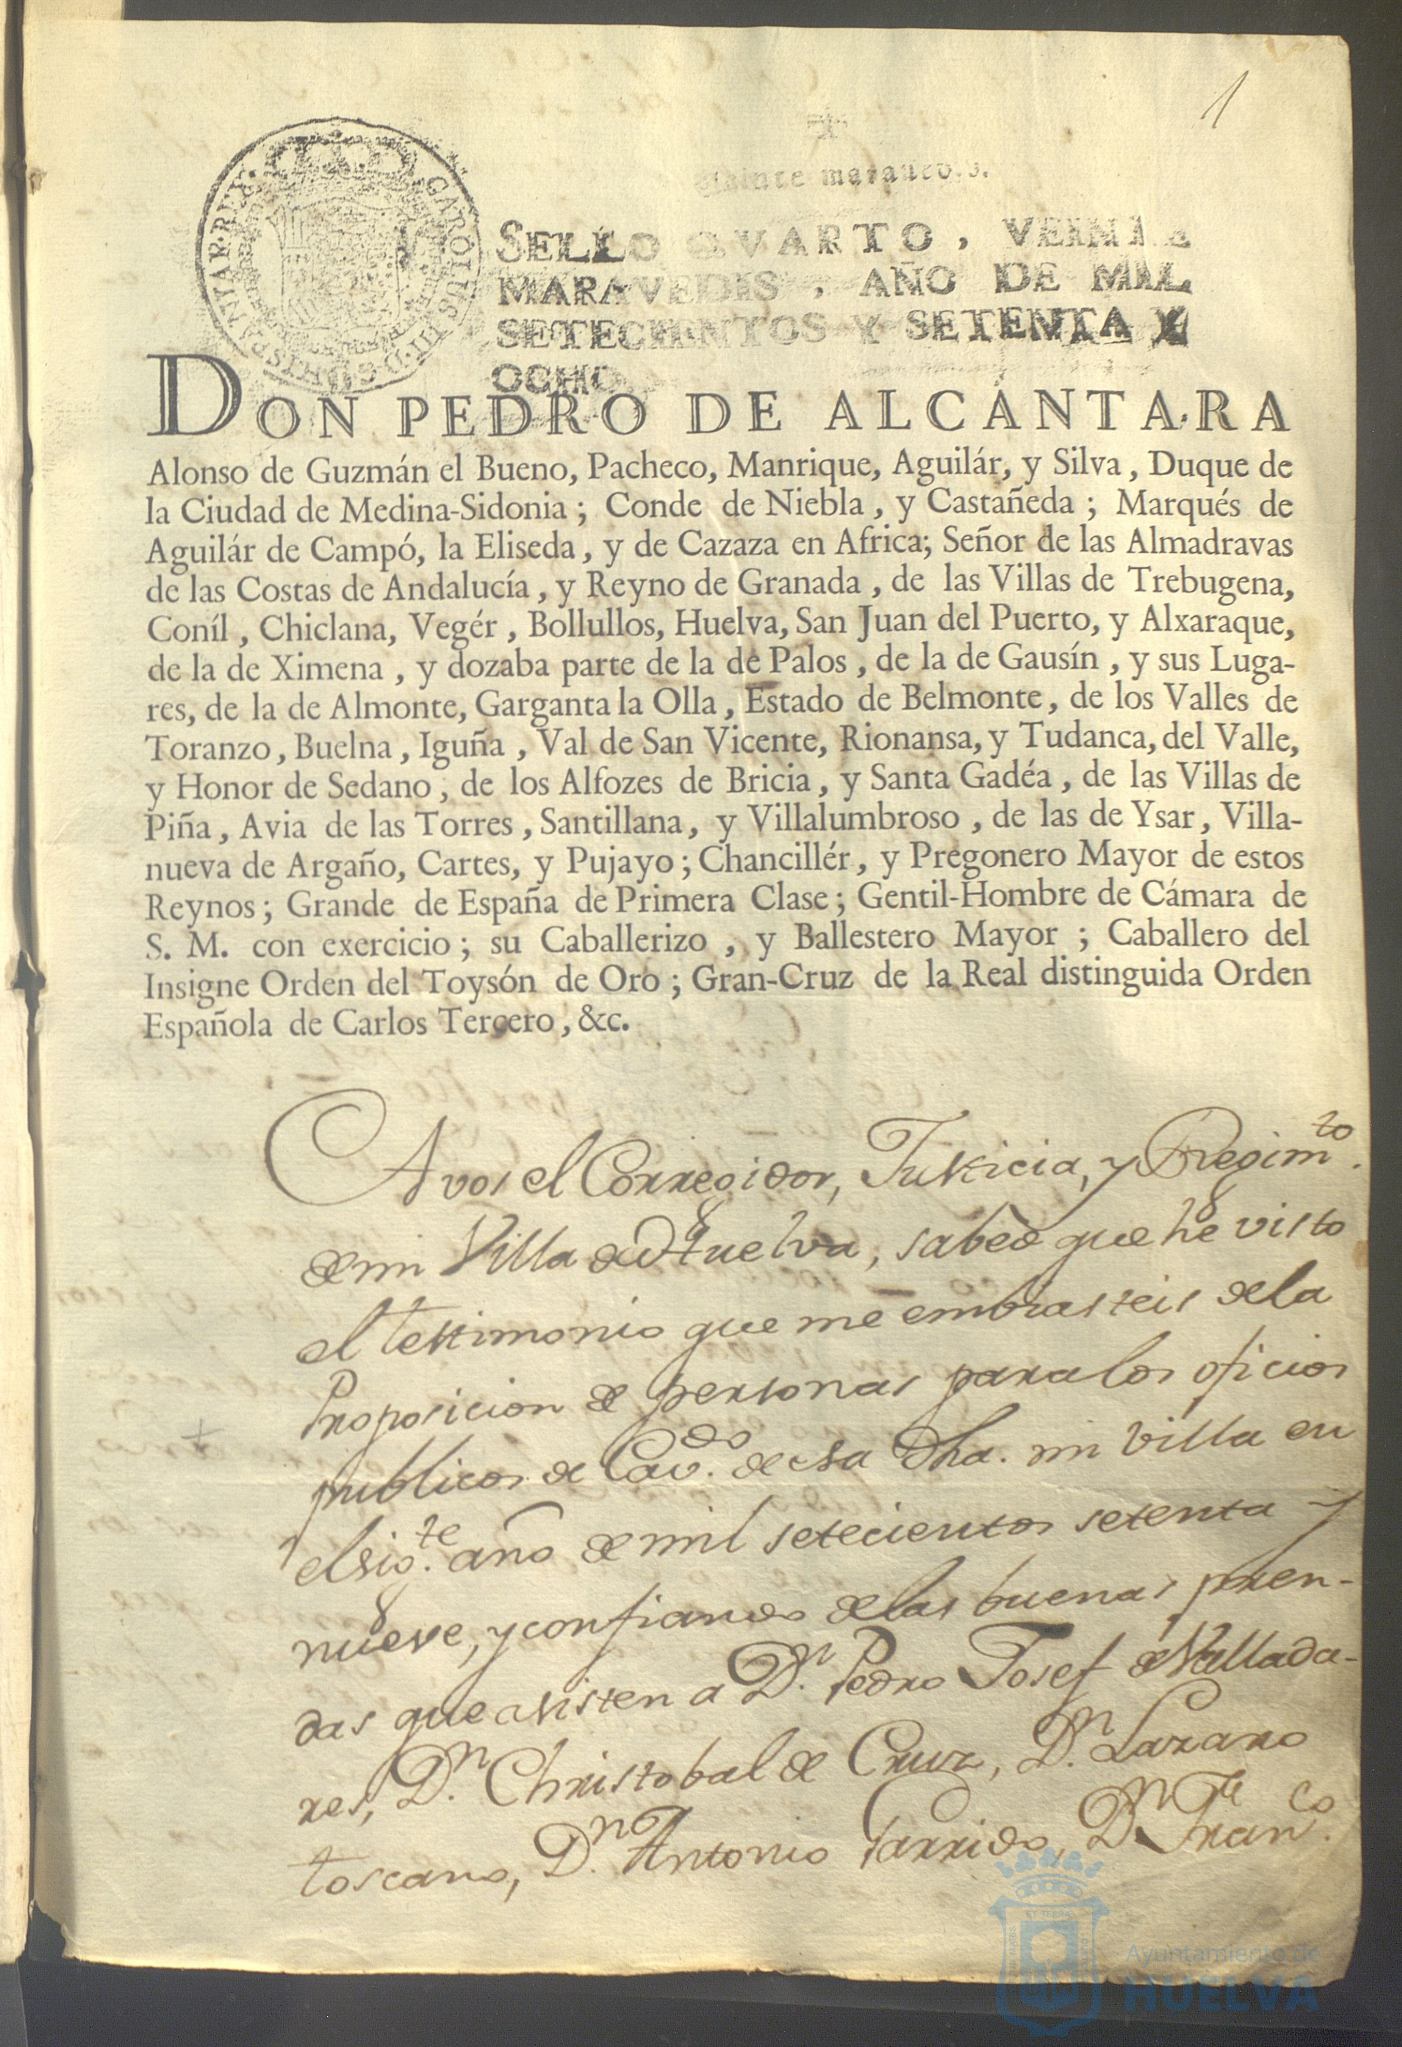 1
Vainte maraued.s.
SELLO QVARTO, VEINTE
MARAVEDIS, AÑO DE MIL
SETECIENTOS Y SETENTA Y
OCHO.
CAROLUS III D. G. HISPANIAR. REX
DON PEDRO DE ALCÁNTARA
Alonso de Guzmán el Bueno, Pacheco, Manrique, Aguilár, y Silva, Duque de
la Ciudad de Medina-Sidonia; Conde de Niebla, y Castañeda; Marqués de
Aguilár de Campó, la Eliseda, y de Cazaza en Africa; Señor de las Almadravas
de las Costas de Andalucía, y Reyno de Granada, de las Villas de Trebugena,
Coníl, Chiclana, Vegér, Bollullos, Huelva, San Juan del Puerto, y Alxaraque,
de la de Ximena, y dozaba parte de la de Palos, de la de Gausín, y sus Luga-
res, de la de Almonte, Garganta la Olla, Estado de Belmonte, de los Valles de
Toranzo, Buelna, Iguña, Val de San Vicente, Rionansa, y Tudanca, del Valle,
y Honor de Sedano, de los Alfozes de Bricia, y Santa Gadéa, de las Villas de
Piña, Avia de las Torres, Santillana, y Villalumbroso, de las de Ysar, Villa-
nueva de Argaño, Cartes, y Pujayo; Chancillér, y Pregonero Mayor de estos
Reynos; Grande de España de Primera Clase; Gentil-Hombre de Cámara de
S. M. con exercicio; su Caballerizo, y Ballestero Mayor; Caballero del
Insigne Orden del Toysón de Oro; Gran-Cruz de la Real distinguida Orden
Española de Carlos Tercero, &c.
A vos el Corregidor, Justicia, y Regim.to
de mi Villa de Huelva, sabed que he visto
el testimonio que me embiasteis de la
Proposicion de personas para los oficios
publicos de Cav.do de esa dha. mi villa en
el sig.te año de mil setecientos setenta y
nueve, y confiando de las buenas pren-
das que asisten a D.n Pedro Josef de Vallada-
res, D.n Christobal de Cruz, D.n Lazaro
toscano, D.n Antonio Garrido, D.n Fran.co
Ayuntamiento de
HUELVA